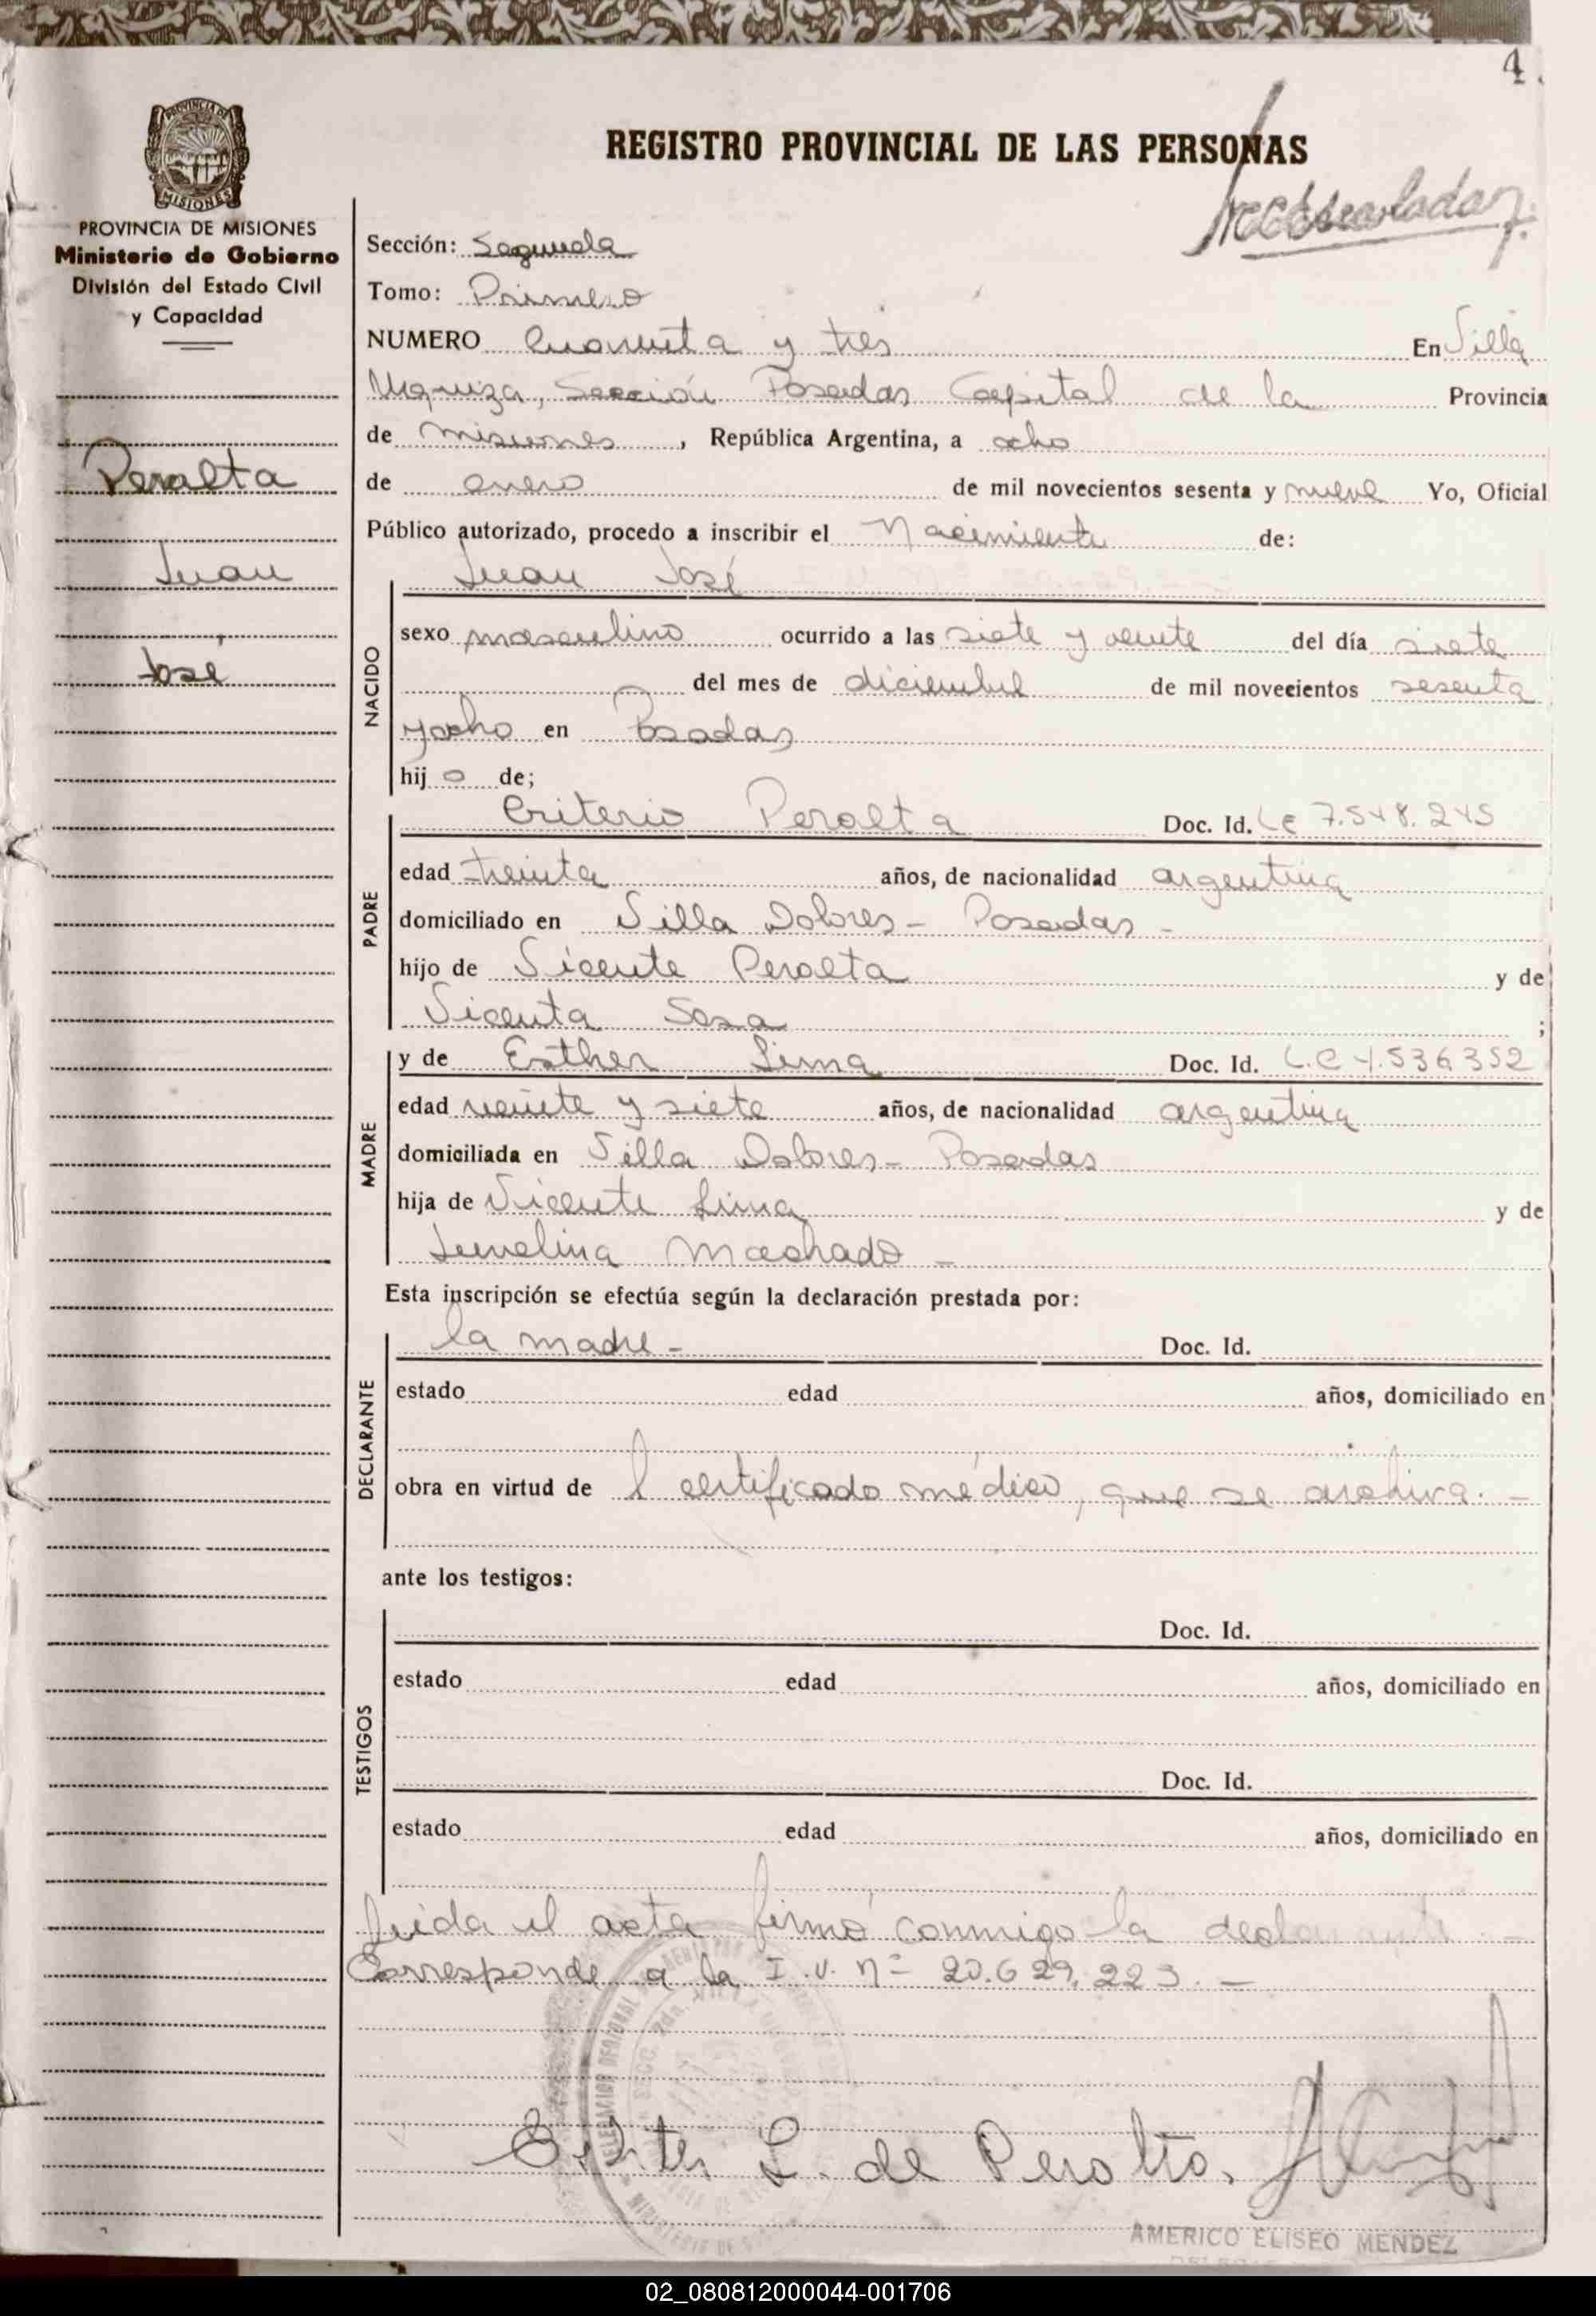 4.
REGISTRO PROVINCIAL DE LAS PERSONAS
PROVINCIA DE
MISIONES
PROVINCIA DE MISIONES
Ministerio de Gobierno
División del Estado Civil
y Capacidad
Peralta
Juan
José
Sección: Segunda
Tomo: Primero
NUMERO Cuarenta y tres En Villa
Urquiza, Sección Posadas Capital de la Provincia
de Misiones, República Argentina, a ocho
de enero de mil novecientos sesenta y nueve Yo, Oficial
Público autorizado, procedo a inscribir el Nacimiento de:
Juan José
NACIDO
sexo masculino ocurrido a las siete y veinte del día siete
del mes de diciembre de mil novecientos sesenta
y ocho en Posadas
hijo de;
PADRE
Criterio Peralta Doc. Id. LE 7.548.245
edad treinta años, de nacionalidad argentina
domiciliado en Villa Dolores - Posadas -
hijo de Vicente Peralta y de
Vicenta Sosa ;
MADRE
y de Esther Lima Doc. Id. L.C 4.536352
edad veinte y siete años, de nacionalidad argentina
domiciliada en Villa Dolores - Posadas
hija de Vicente Lima y de
Machado -
Esta inscripción se efectúa según la declaración prestada por:
DECLARANTE
la madre - Doc. Id.
estado edad años, domiciliado en
obra en virtud de l certificado médico, que se archiva. -
ante los testigos:
TESTIGOS
Doc. Id.
estado edad años, domiciliado en
Doc. Id.
estado edad años, domiciliado en
Leída el acta firmó conmigo la declarante. -
Corresponde a la I.U. nº 20.629.223. -
L. de Peralta.
AMERICO ELISEO MENDEZ
02_080812000044-001706